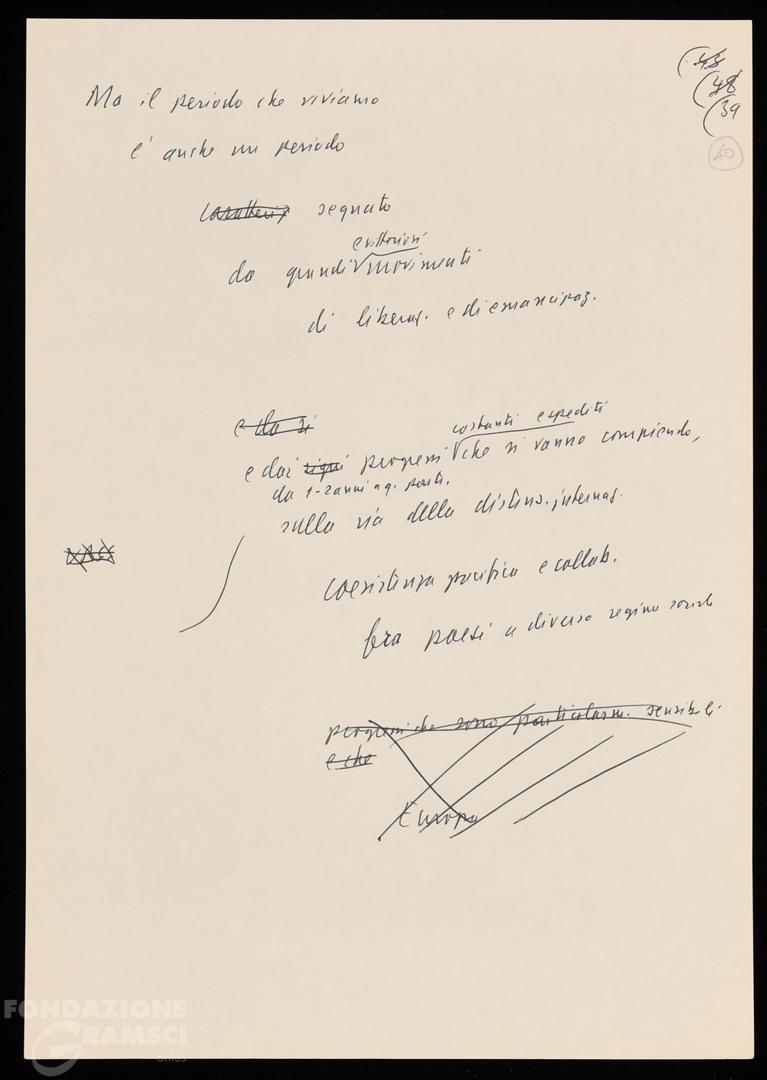 (48
(48
(39
40
Ma il periodo che viviamo
e' anche un periodo
segnato
e vittoriosi
da grandi movimenti
di liberaz. e di emancipaz.
e da si
costanti e spediti
e dai progressi che si vanno compiendo,
da 1-2 anni a q. parte.
sulla via della distens. internaz.
coesistenza pacifica e collab.
fra paesi a diverso regime sociale
progressi che sono particolarm. sensibili
e che
Europa
FONDAZIONE
GRAMSCI
ONLUS